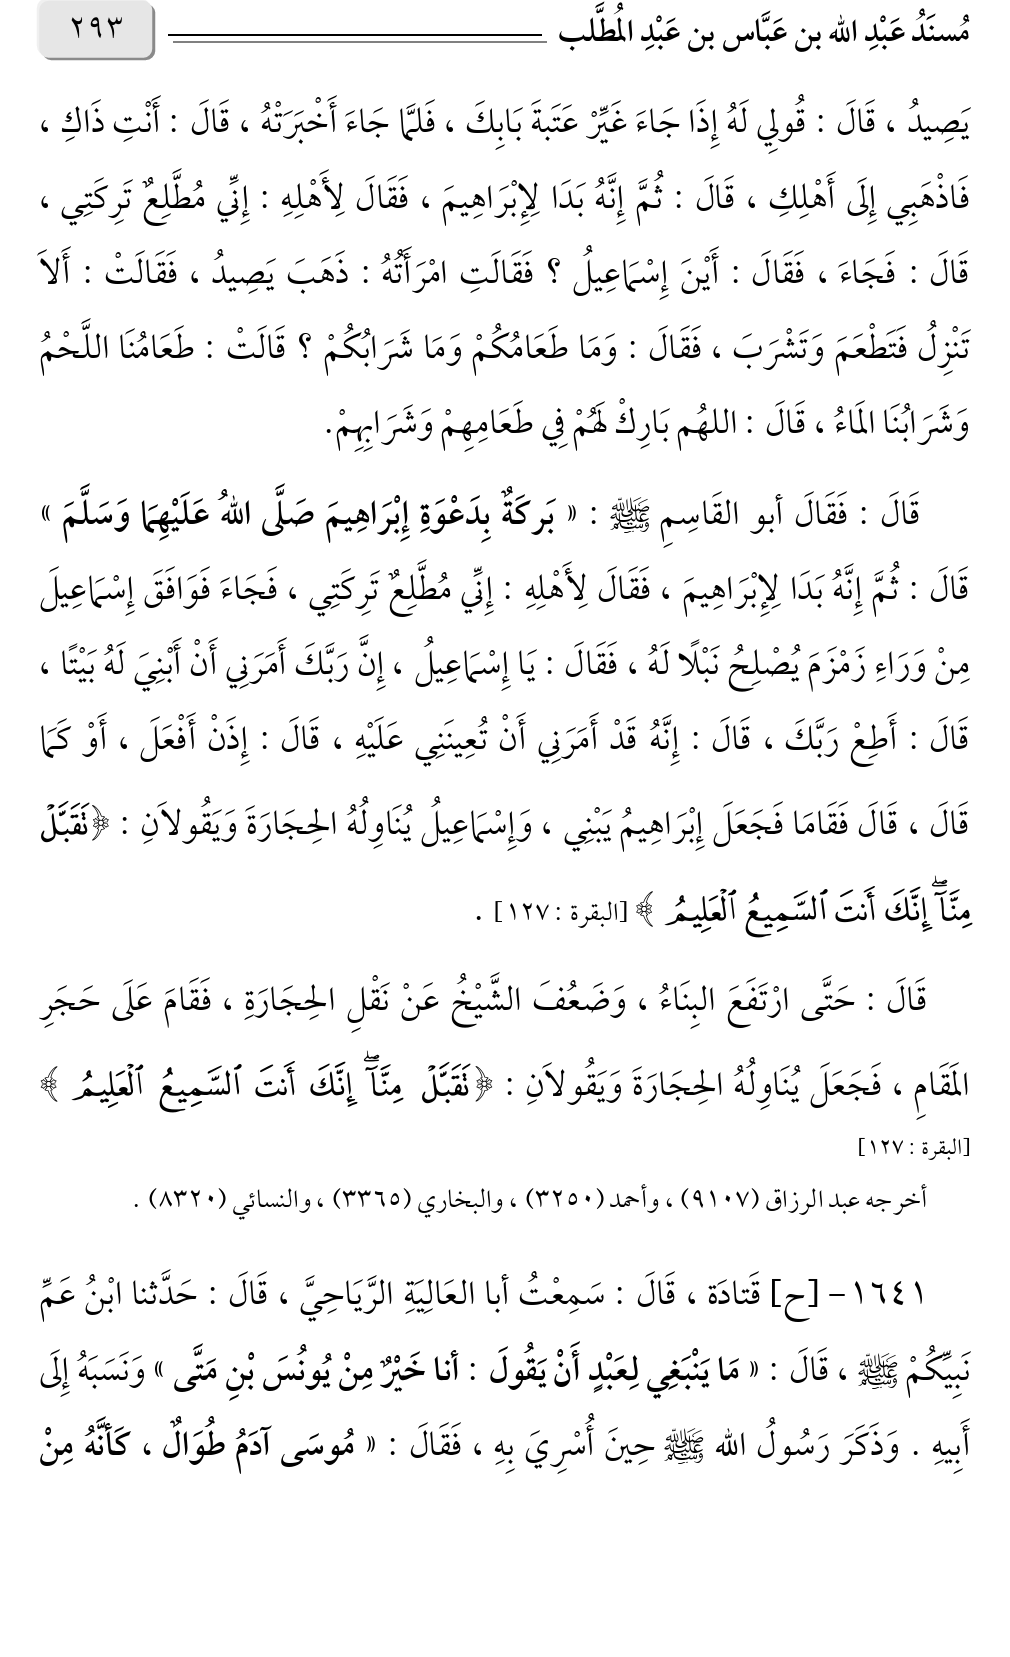 مُسنَدُ عَبْدِ الله بن عَبَّاس بن عَبْدِ المُطَّلب ٢٩٣
يَصِيدُ ، قَالَ : قُولِي لَهُ إِذَا جَاءَ غَيِّرْ عَتَبَةَ بَابِكَ ، فَلمَّا جَاءَ أَخْبَرَتْهُ ، قَالَ : أَنْتِ ذَاكِ ،
فَاذْهَبِي إِلَى أَهْلِكِ ، قَالَ : ثُمَّ إِنَّهُ بَدَا لِإِبْرَاهِيمَ ، فَقَالَ لِأَهْلِهِ : إِنِّي مُطَّلِعٌ تَرِكَتِي ،
قَالَ : فَجَاءَ ، فَقَالَ : أَيْنَ إِسْمَاعِيلُ ؟ فَقَالَتِ امْرَأَتُهُ : ذَهَبَ يَصِيدُ ، فَقَالَتْ : أَلاَ
تَنْزِلُ فَتَطْعَمَ وَتَشْرَبَ ، فَقَالَ : وَمَا طَعَامُكُمْ وَمَا شَرَابُكُمْ ؟ قَالَتْ : طَعَامُنَا اللَّحْمُ
وَشَرَابُنَا المَاءُ ، قَالَ : اللهُم بَارِكْ لَهُمْ فِي طَعَامِهِمْ وَشَرَابِهِمْ.
قَالَ : فَقَالَ أبو القَاسِمِ ﷺ : « بَركَةٌ بِدَعْوَةِ إِبْرَاهِيمَ صَلَّى اللهُ عَلَيْهِمَا وَسَلَّمَ »
قَالَ : ثُمَّ إِنَّهُ بَدَا لِإِبْرَاهِيمَ ، فَقَالَ لِأَهْلِهِ : إِنِّي مُطَّلِعٌ تَرِكَتِي ، فَجَاءَ فَوَافَقَ إِسْمَاعِيلَ
مِنْ وَرَاءِ زَمْزَمَ يُصْلِحُ نَبْلًا لَهُ ، فَقَالَ : يَا إِسْمَاعِيلُ ، إِنَّ رَبَّكَ أَمَرَنِي أَنْ أَبْنِيَ لَهُ بَيْتًا ،
قَالَ : أَطِعْ رَبَّكَ ، قَالَ : إِنَّهُ قَدْ أَمَرَنِي أَنْ تُعِينَنِي عَلَيْهِ ، قَالَ : إِذَنْ أَفْعَلَ ، أَوْ كَمَا
قَالَ ، قَالَ فَقَامَا فَجَعَلَ إِبْرَاهِيمُ يَبْنِي ، وَإِسْمَاعِيلُ يُنَاوِلُهُ الحِجَارَةَ وَيَقُولاَنِ : ﴿نَقَبَّلۡ
مِنَّآۖ إِنَّكَ أَنتَ ٱلسَّمِيعُ ٱلۡعَلِيمُ ﴾ [البقرة : ١٢٧] .
قَالَ : حَتَّى ارْتَفَعَ البِنَاءُ ، وَضَعُفَ الشَّيْخُ عَنْ نَقْلِ الحِجَارَةِ ، فَقَامَ عَلَى حَجَرِ
المَقَامِ ، فَجَعَلَ يُنَاوِلُهُ الحِجَارَةَ وَيَقُولاَنِ : ﴿نَقَبَّلۡ مِنَّآۖ إِنَّكَ أَنتَ ٱلسَّمِيعُ ٱلۡعَلِيمُ ﴾
[البقرة : ١٢٧]
أخرجه عبد الرزاق (٩١٠٧) ، وأحمد (٣٢٥٠) ، والبخاري (٣٣٦٥) ، والنسائي (٨٣٢٠) .
١٦٤١ – [ح] قَتادَة ، قَالَ : سَمِعْتُ أبا العَالِيَةِ الرَّيَاحِيَّ ، قَالَ : حَدَّثنا ابْنُ عَمِّ
نَبِيِّكُمْ ﷺ ، قَالَ : « مَا يَنْبَغِي لِعَبْدٍ أَنْ يَقُولَ : أنا خَيْرٌ مِنْ يُونُسَ بْنِ مَتَّى » وَنَسَبَهُ إِلَى
أَبِيهِ . وَذَكَرَ رَسُولُ الله ﷺ حِينَ أُسْرِيَ بِهِ ، فَقَالَ : « مُوسَى آدَمُ طُوَالٌ ، كَأنَّهُ مِنْ